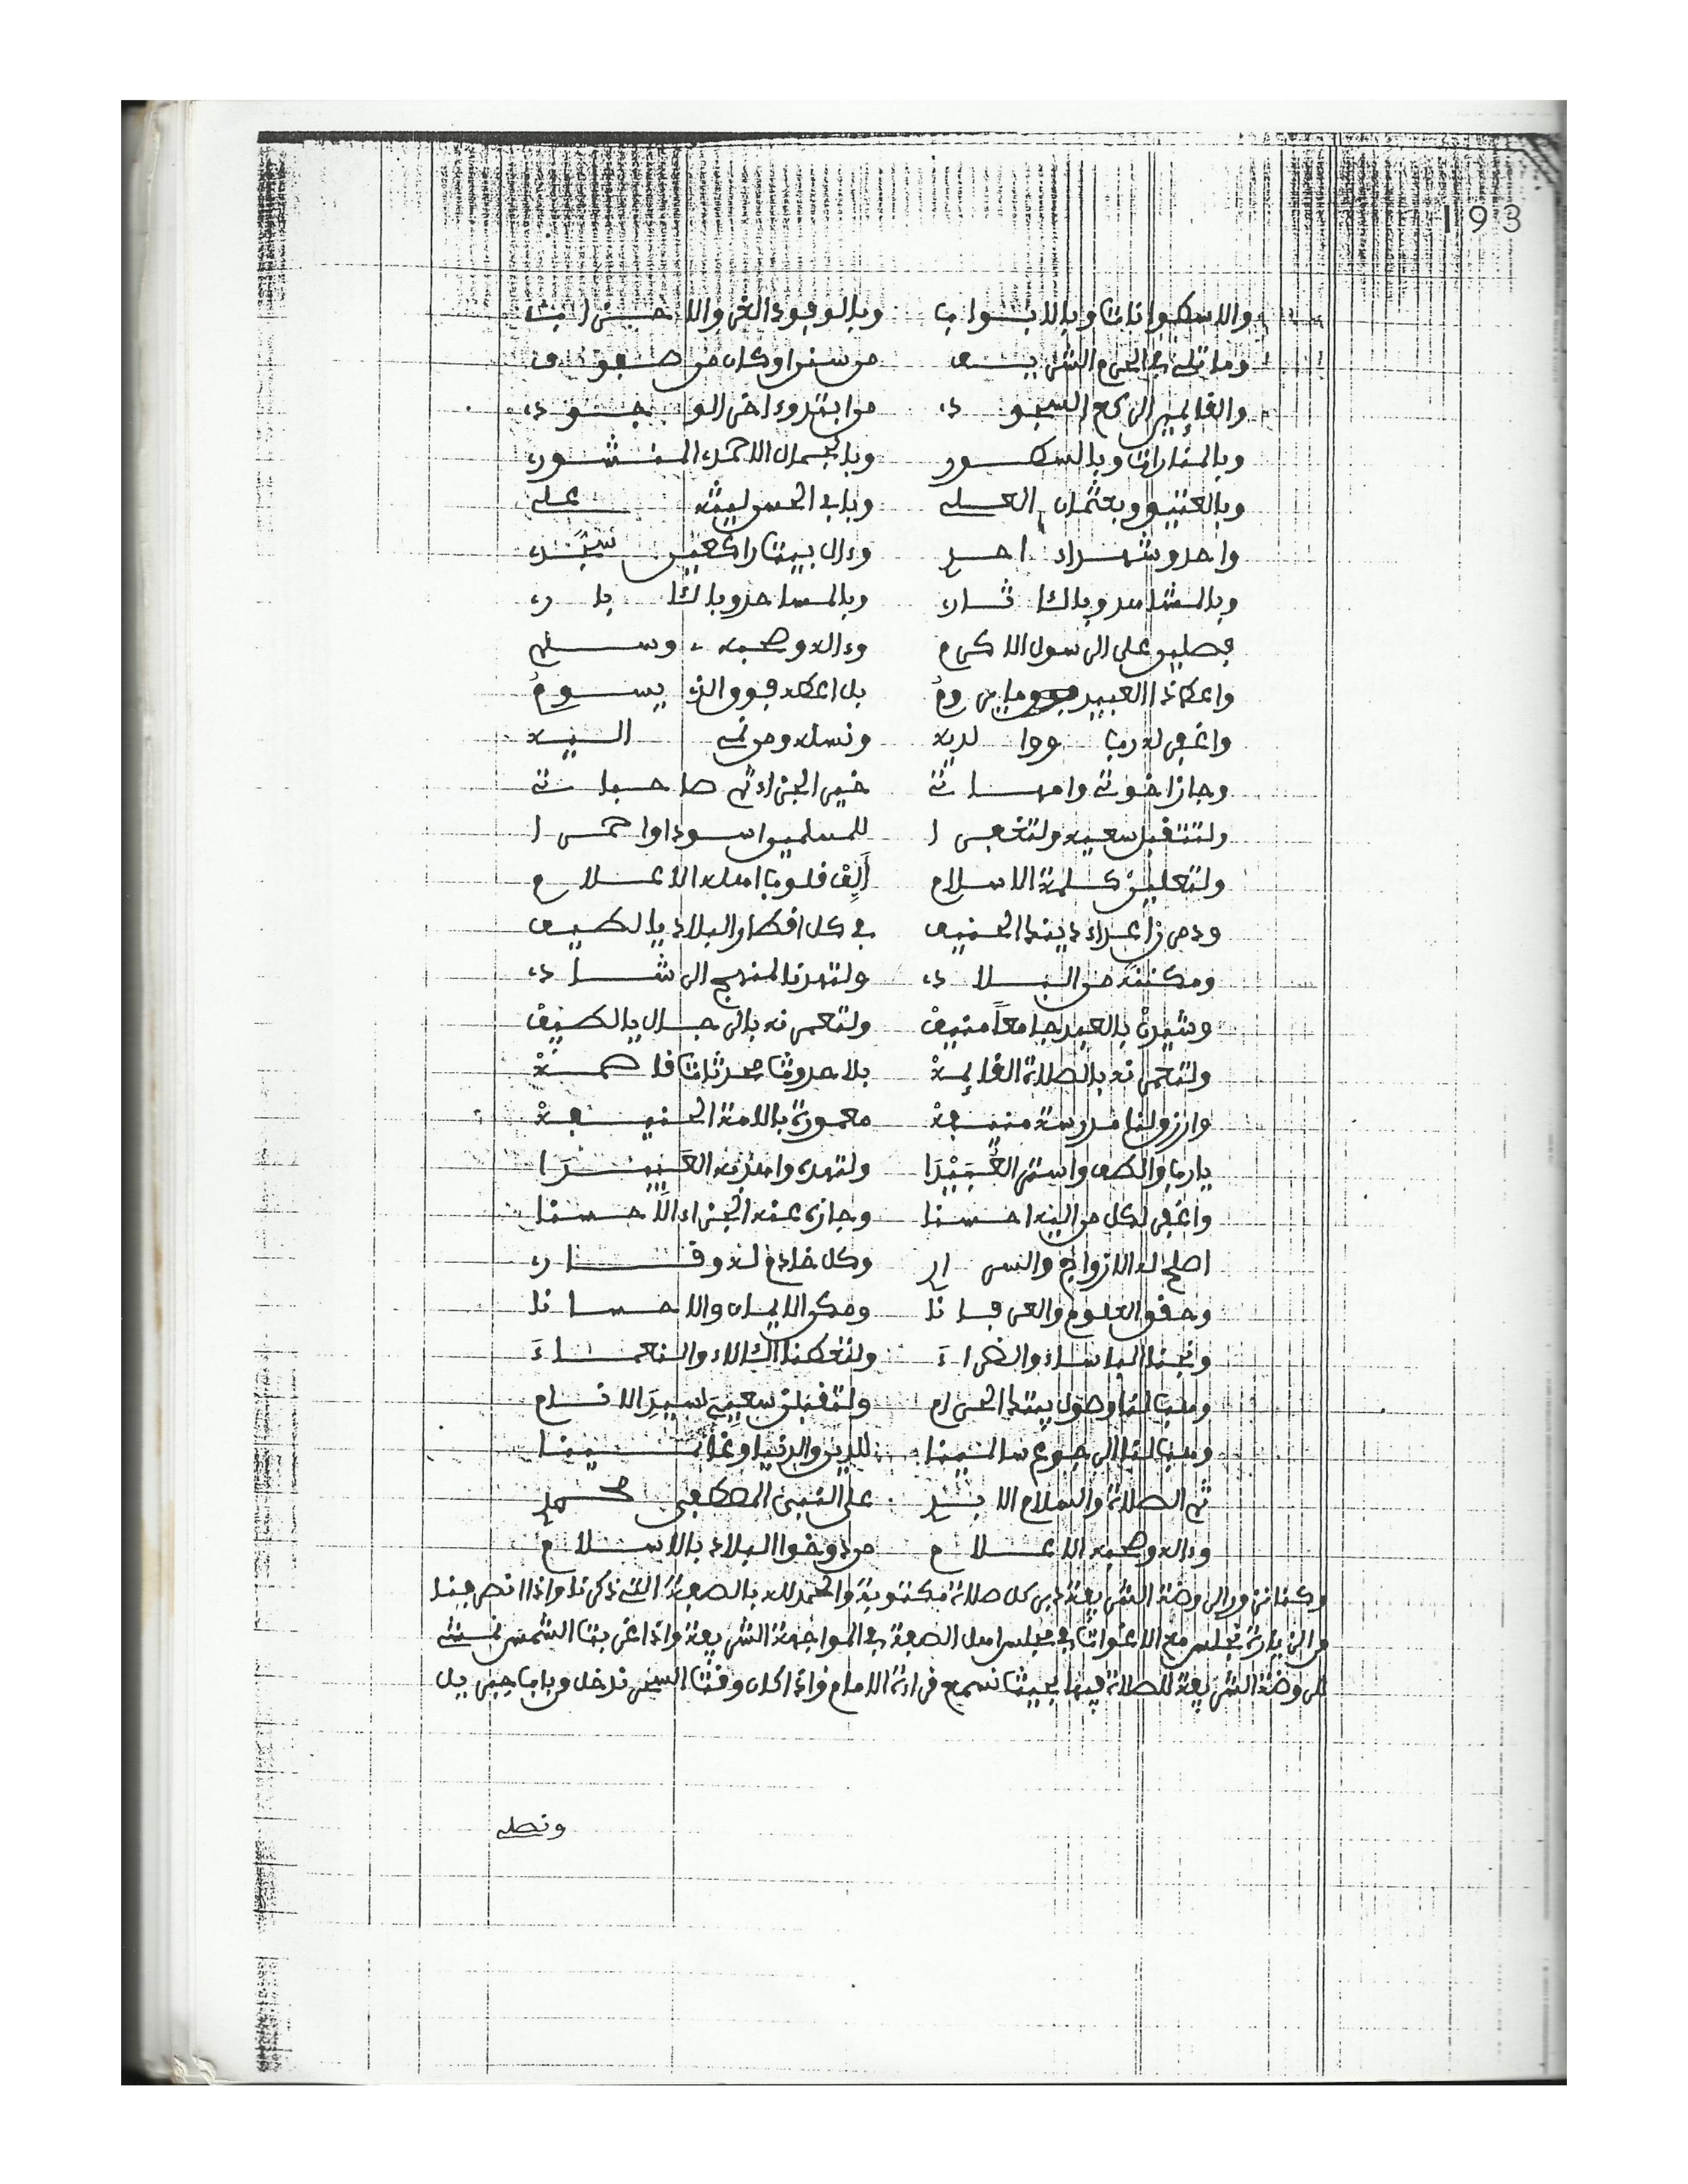 193
والاسطوانات وبالابواب وبالوفود الغر والاحزاب
وما تلي في الحرم الشريف من سنرا وكان من صفوف
والقائمين الركع السجود من ابتدوء اخر الوجود
وبالمنارات وبالسطور وبالجمال الاحمد المنشور
وبالعتيق وبعثمان العلي وبابي الحسن ليث علي
واحد وشهداء احد وءال بيت راكعين سجد
وبالمشاهد وبالاثار وبالمساجد وبالابار
فصلين على الرسول الاكرم وءاله وصحبه وسلم
واعط ذا العبيد ما يروم بل اعطه فوق الذي يسوم
واغفر له رب ووالديه ونسله ومن نمي اليه
وجاز اخوتي وامهاتي خير الجزاء ثم صاحباتي
ولتتقبل سعيه ولتغفرا للمسلمين اسودا واحمرا
ولتعلين كلمة الاسلام ألف قلوب اهله الاعلام
ودمر اعداء دينك الحنيف في كل اقطار البلاد يا لطيف
ومكننه من البلاد ولتهدنا لمنهج الرشاد
وشيدن بالعبد جامعا منيف ولتعمرنه بالرجال يا لطيف
ولتعمرنه بالصلاة القائمة بلا حدوث محدثات قاصمة
وارزق لنا مدرسة منيفة معمورة بالامة الحنيفة
يا رب والطف واستر العبيدا ولتهده واهد به العبيدا
واغفر لكل من اليه احسنا وجازه عنه الجزاء الاحسنا
اصلح له الازواج والسرار وكل خادم له وقار
وحقق العلوم والعرفانا ومكن الايمان والاحسانا
ونجنا الباساء والضراء ولتعطنا الالاء والنعماء
وهب لنا وصول بيتك الحرام ولتقبلن سعيه سيد الانام
وهب لنا الرجوع سالمينا للدين والدنيا وغانمينا
ثم الصلاة والسلام الابد على النبي المصطفى محمد
وءاله وصحبه الاعلام من دوخوا البلاد بالاسلام
وكنا نزور الروضة الشريفة دبر كل صلاة مكتوبة والحمد لله بالصفة التي ذكرنا واذا انصرفنا
من الزيارة نجلس مع الاغوات في مجلس اهل الصفة في المواجهة الشريفة واذا غربت الشمس نمشي
للروضة الشريفة للصلاة فيها بحيث نسمع قراءة الامام واذا كان وقت السحر ندخل من باب جبريل
ونصلي